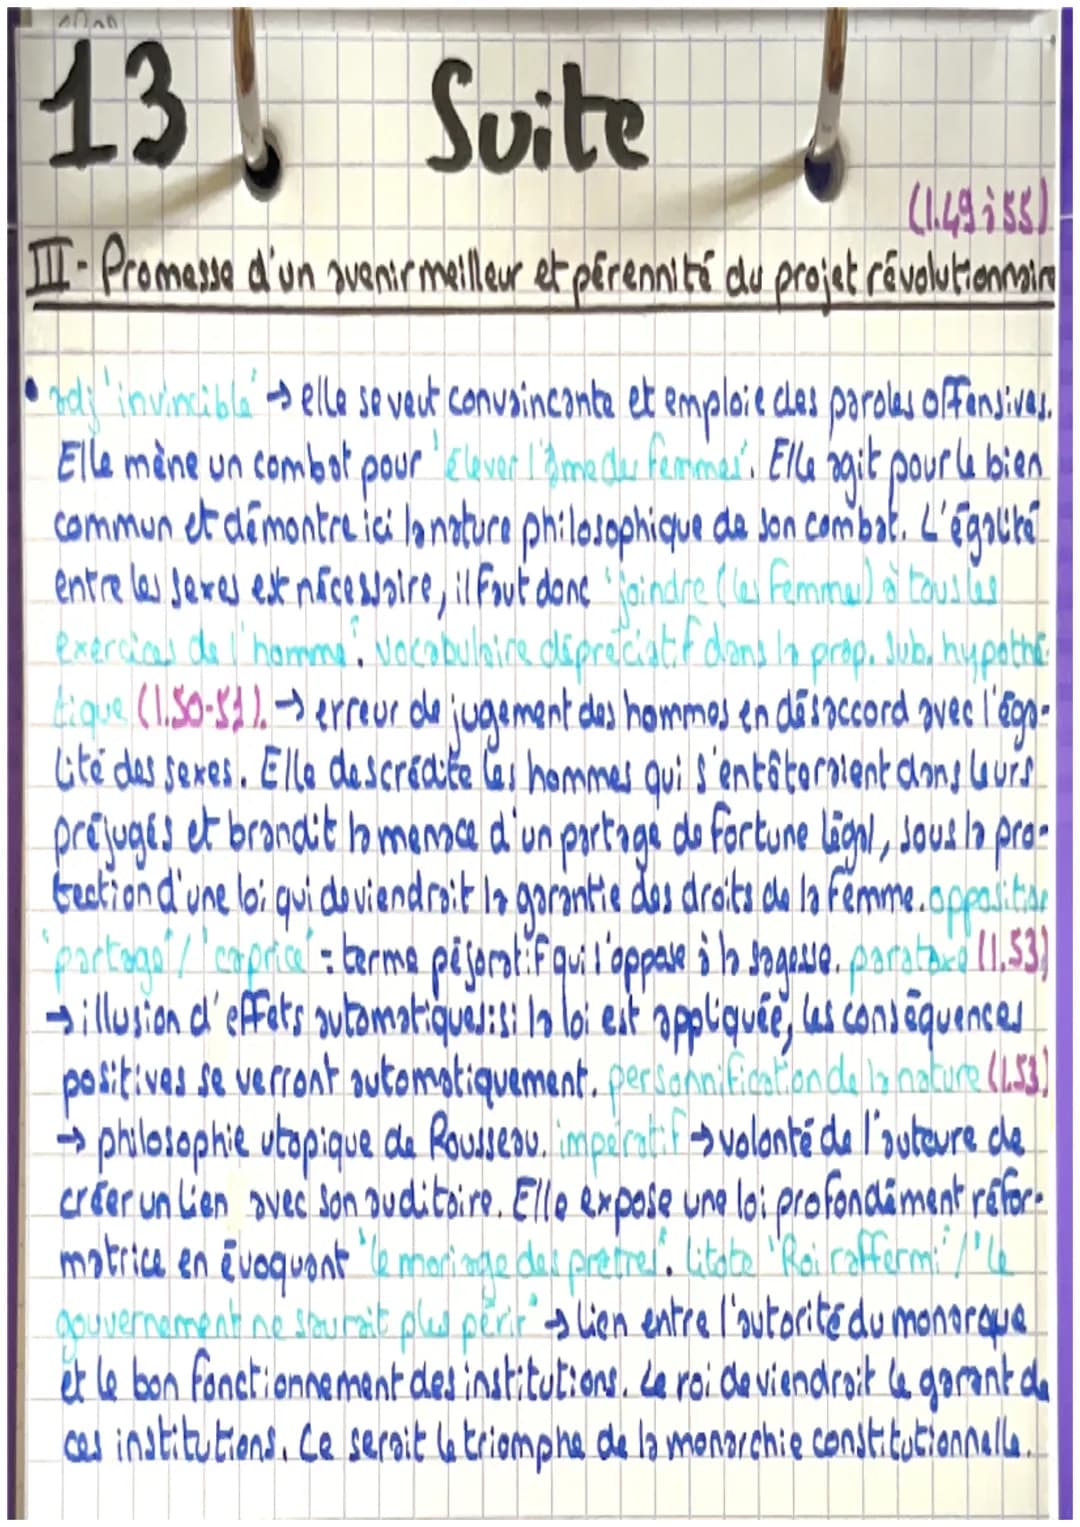 13 Suite
(l.49 à 55)
III - Promesse d'un avenir meilleur et pérennité du projet révolutionnaire
• adj 'invincible' → elle se veut convaincante et emploie des paroles offensives.
Elle mène un combat pour 'élever l'âme des femmes'. Elle agit pour le bien
commun et démontre ici la nature philosophique de son combat. L'égalité
entre les sexes est nécessaire, il faut donc 'joindre (les femmes) à tous les
exercices de l'homme'. vocabulaire dépréciatif dans la prop. sub. hypothé-
tique (l.50-51). → erreur de jugement des hommes en désaccord avec l'éga-
lité des sexes. Elle descrédite les hommes qui s'entêteraient dans leurs
préjugés et brandit la menace d'un partage de fortune légal, sous la pro-
tection d'une loi qui deviendrait la garantie des droits de la femme. opposition
'partage' / 'caprice' = terme péjoratif qui s'oppose à la sagesse. parataxe (l.53)
→ illusion d'effets automatiques: si la loi est appliquée, les conséquences
positives se verront automatiquement. personnification de la nature (l.53)
→ philosophie utopique de Rousseau. impératif → volonté de l'auteure de
créer un lien avec son auditoire. Elle expose une loi profondément réfor-
matrice en évoquant 'le mariage des prêtres'. litote 'Roi raffermi' / 'le
gouvernement ne saurait plus périr' → lien entre l'autorité du monarque
et le bon fonctionnement des institutions. Le roi deviendrait le garant de
ces institutions. Ce serait le triomphe de la monarchie constitutionnelle.